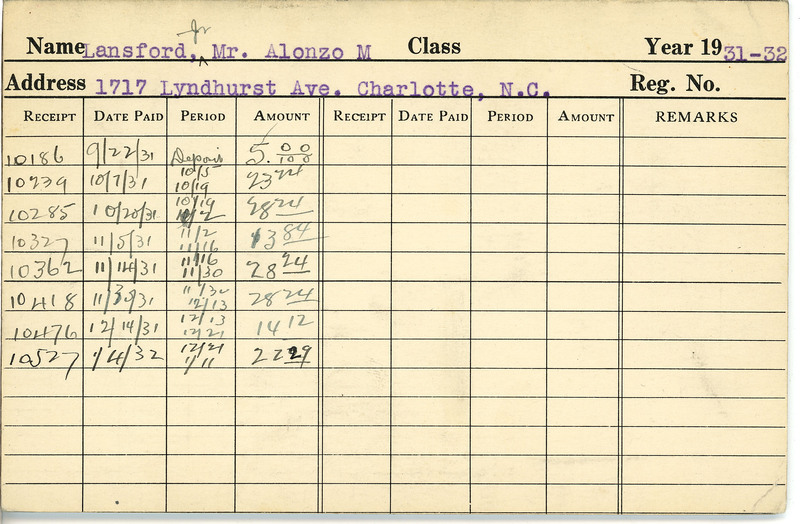 Jr
Name Lansford, Mr. Alonzo M Class Year 1931-32
Address 1717 Lyndhurst Ave. Charlotte, N.C. Reg. No.
RECEIPT DATE PAID PERIOD AMOUNT RECEIPT DATE PAID PERIOD AMOUNT REMARKS
10186 9/22/31 Deposit 5.00/100
10239 10/7/31 10/5 10/19 23 24
10285 10/20/31 10/19 11/2 28 24
10327 11/5/31 11/2 11/16 13 84
10362 11/14/31 11/16 11/30 28 24
10418 11/30/31 11/30 12/13 28 24
10476 12/14/31 12/13 12/21 14 12
10527 1/4/32 12/21 1/11 22 29